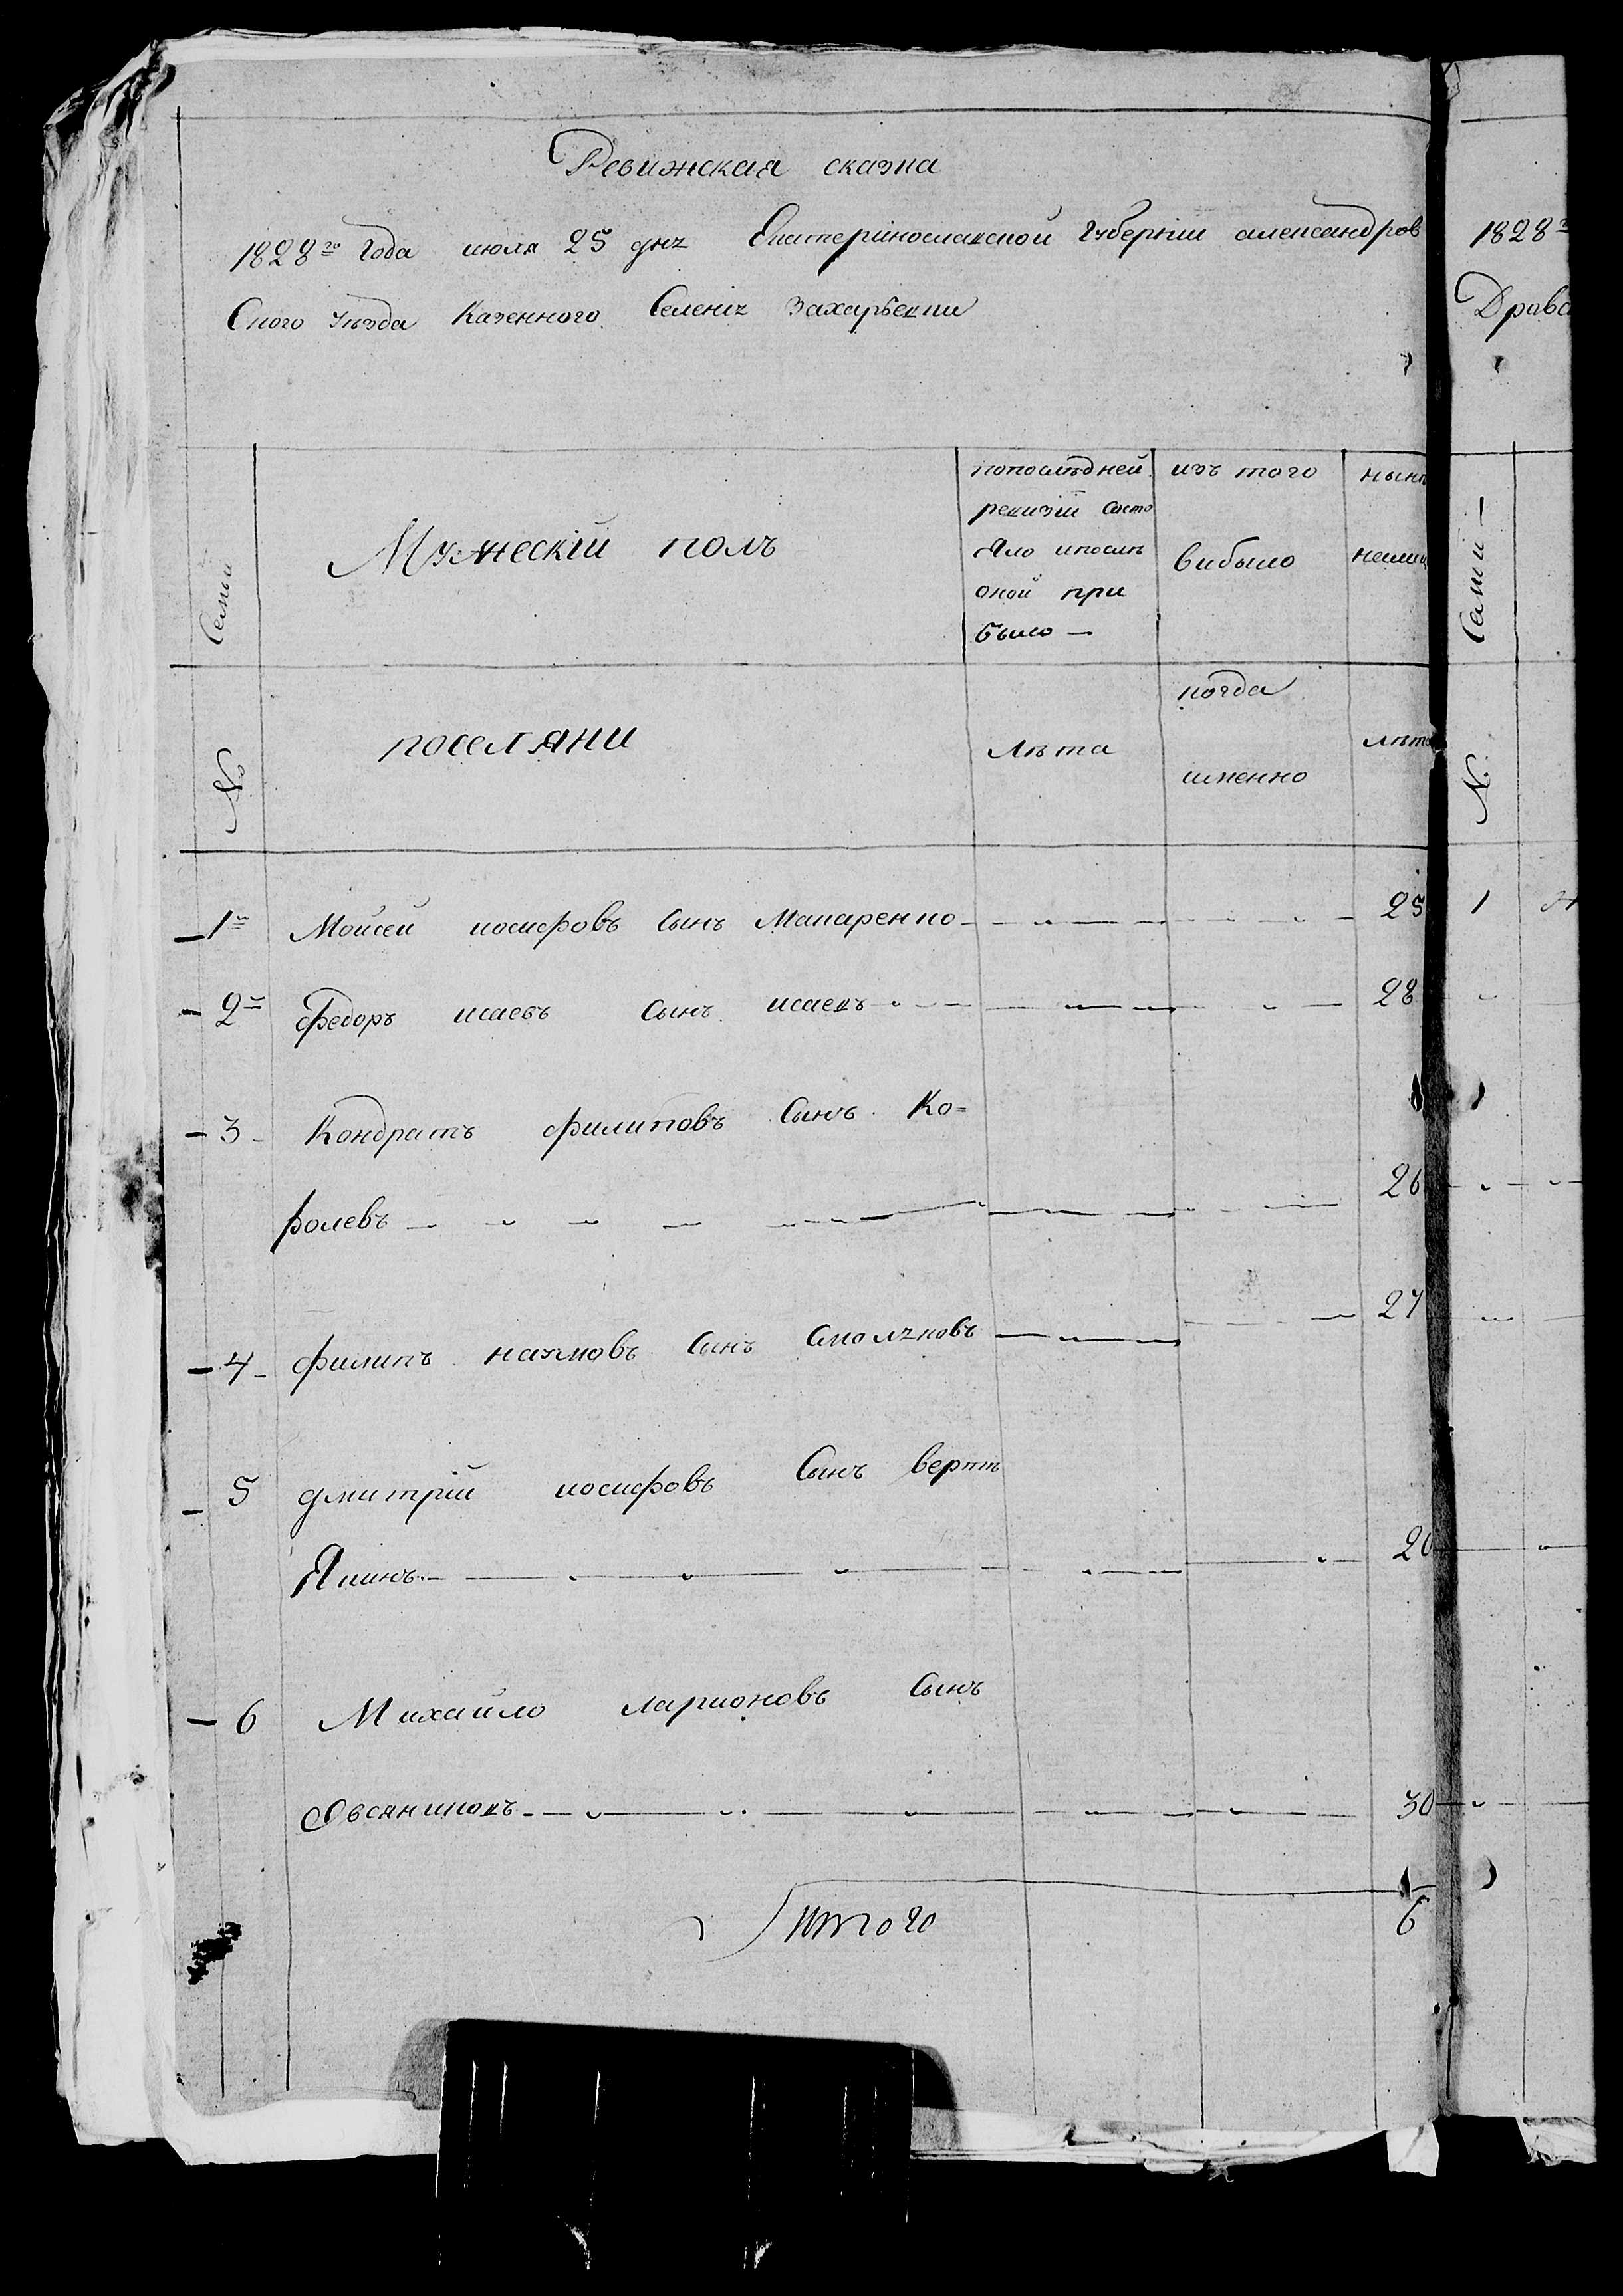 Ревижская сказка
1828го Года июля 25 дня Екатеринославской Губерніи александров
Ского уезда Казенного Селенія Захарьевки
Семьи
Мужескій полъ
попослѣдней
ревизіи Състо
Яло ипослѣ
оной при
было —
изъ того
выбыло
нынѣ
налиц
№
поселяни
лѣта
когда
именно
лѣта
1й Мойсей иосифовъ Сынъ Макаренко 25
2й Федоръ исаевъ Сынъ исаевъ 28
3 Кондратъ филиповъ Сынъ Ко=
ролевъ 26
4 филипъ наумовъ Сынъ Смоляковъ 27
5 дмитрій иосифовъ Сынъ верте
Якинъ 20
6 Михайло ларионовъ Сынъ
Овсяниковъ 30
Итого 6
1828го
Драво
Семьи —
№
1